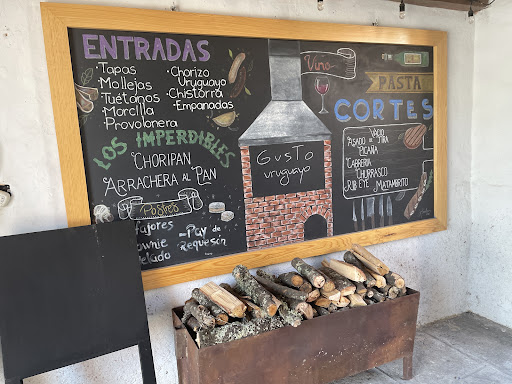 ENTRADAS
• Tapas
• Mollejas
• Tuétanos
• Morcilla
• Provolonera
• Chorizo
Uruguayo
• Chistorra
• Empanadas
LOS IMPERDIBLES
CHORIPAN
ARRACHERA AL PAN
Postres
Pay de
Requesón
Gusto
uruguayo
Vino
PASTA
CORTES
VACIO
ASADO DE TIRA
PICAÑA
CABRERIA
CHURRASCO
RIB EYE MATAMBRITO